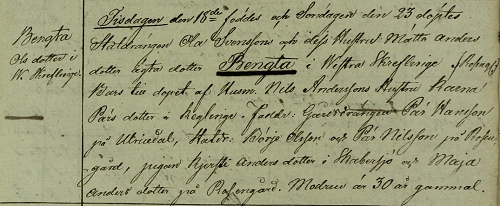 Bengta
Ols dotter i
W. Skreflinge.
Tisdagen den 18de föddes och Söndagen den 23 döptes
Stalldrängen Ola Svenssons och dess Hustru Matta Anders
dotter ägta dotter Bengta i Westra Skreflinge
Bars till dopet af Husm. Nils Anderssons Hustru Karna
Pärs dotter i Heglinge. Faddr: Gårdsdrängen Pär Hansson
på Ulricedal, Husdr: Börje Olsson och Pär Nilsson på Rosen
gård, pigan Kjersti Anders dotter i Skabersjö och Maja
Anders dotter på Rosengård. Modren är 30 år gammal.